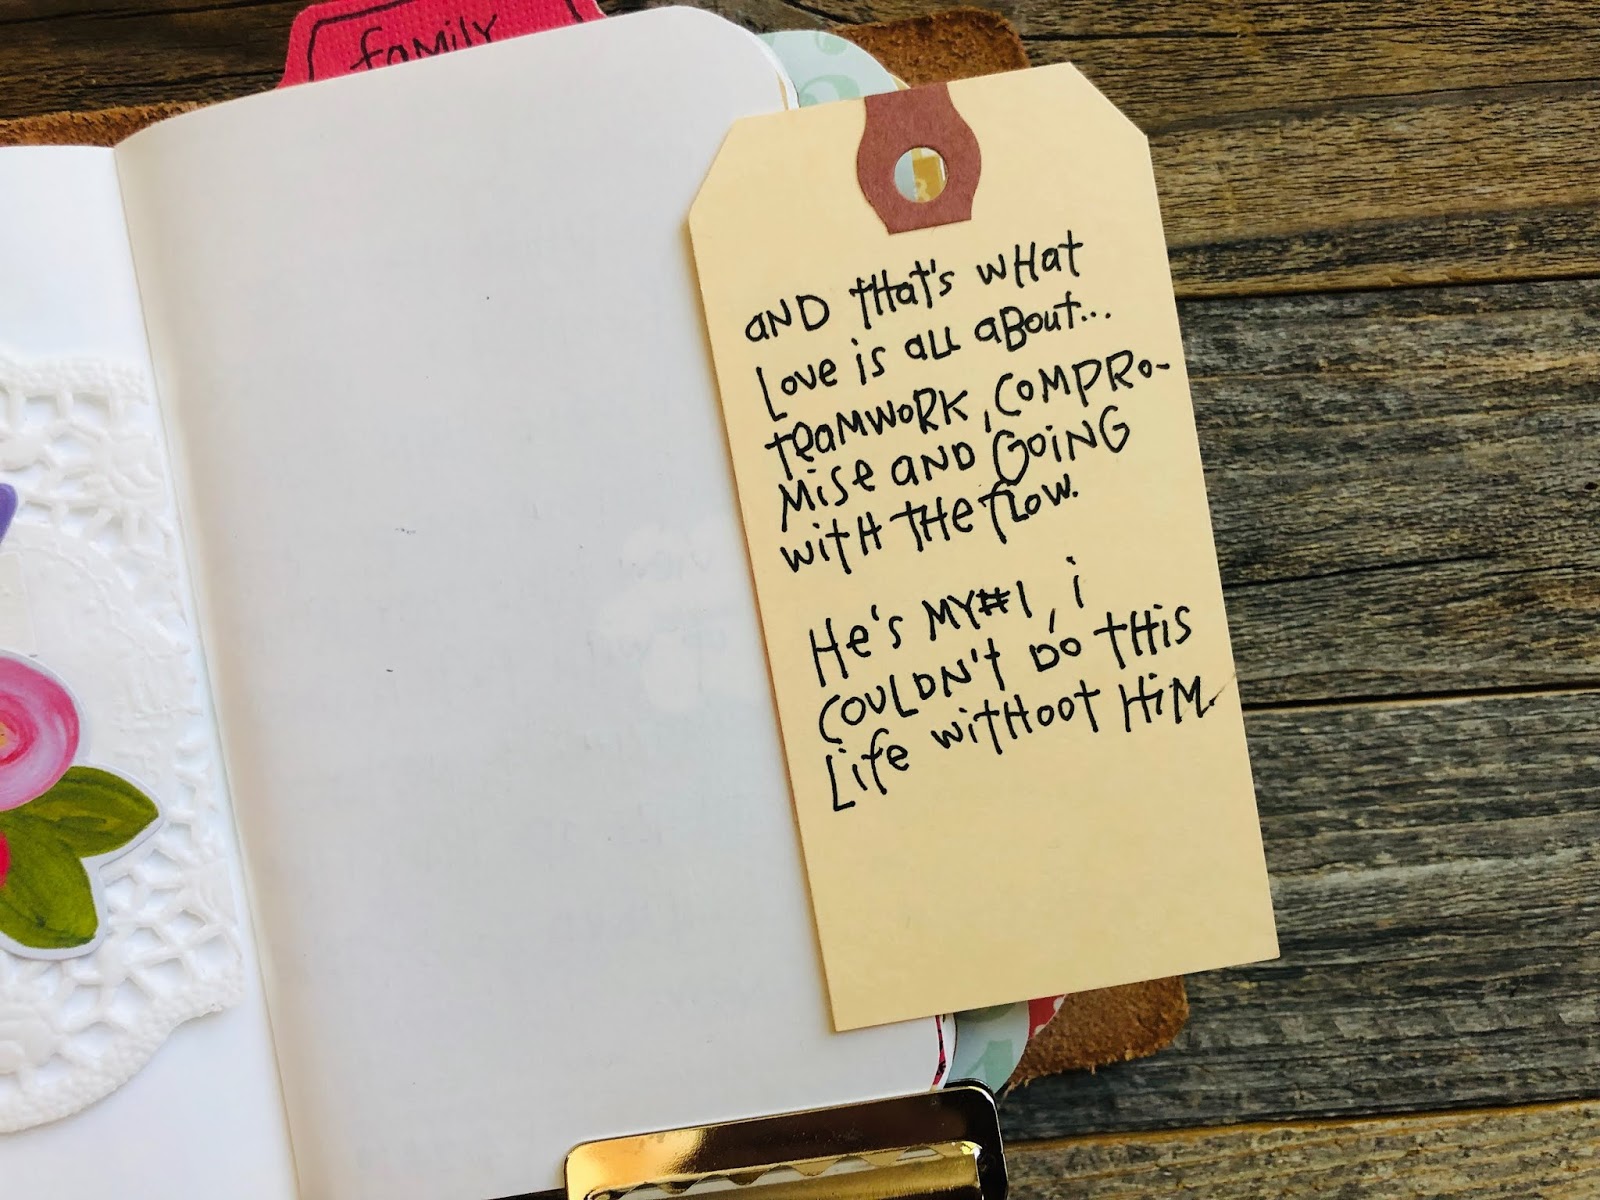 family
AND tHat's wHat
Love is aLL aBout...
teamwoRK, COMPRO-
Mise AND GOiNG
witH tHe flow.
He's MY #1, i
COULDN't DO tHis
Life witHoot HiM.